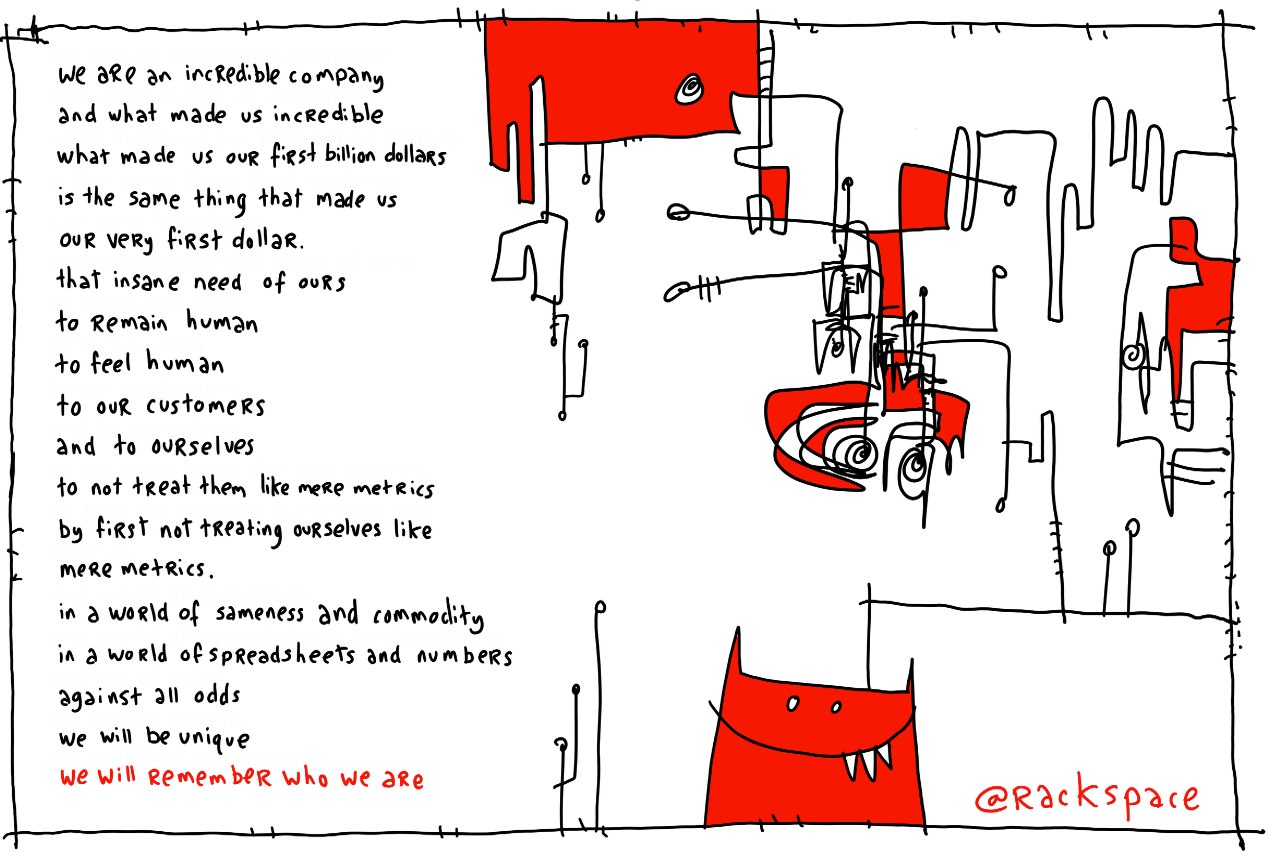 we are an incredible company
and what made us incredible
what made us our first billion dollars
is the same thing that made us
our very first dollar.
that insane need of ours
to remain human
to feel human
to our customers
and to ourselves
to not treat them like mere metrics
by first not treating ourselves like
mere metrics.
in a world of sameness and commodity
in a world of spreadsheets and numbers
against all odds
we will be unique
we will remember who we are
@rackspace